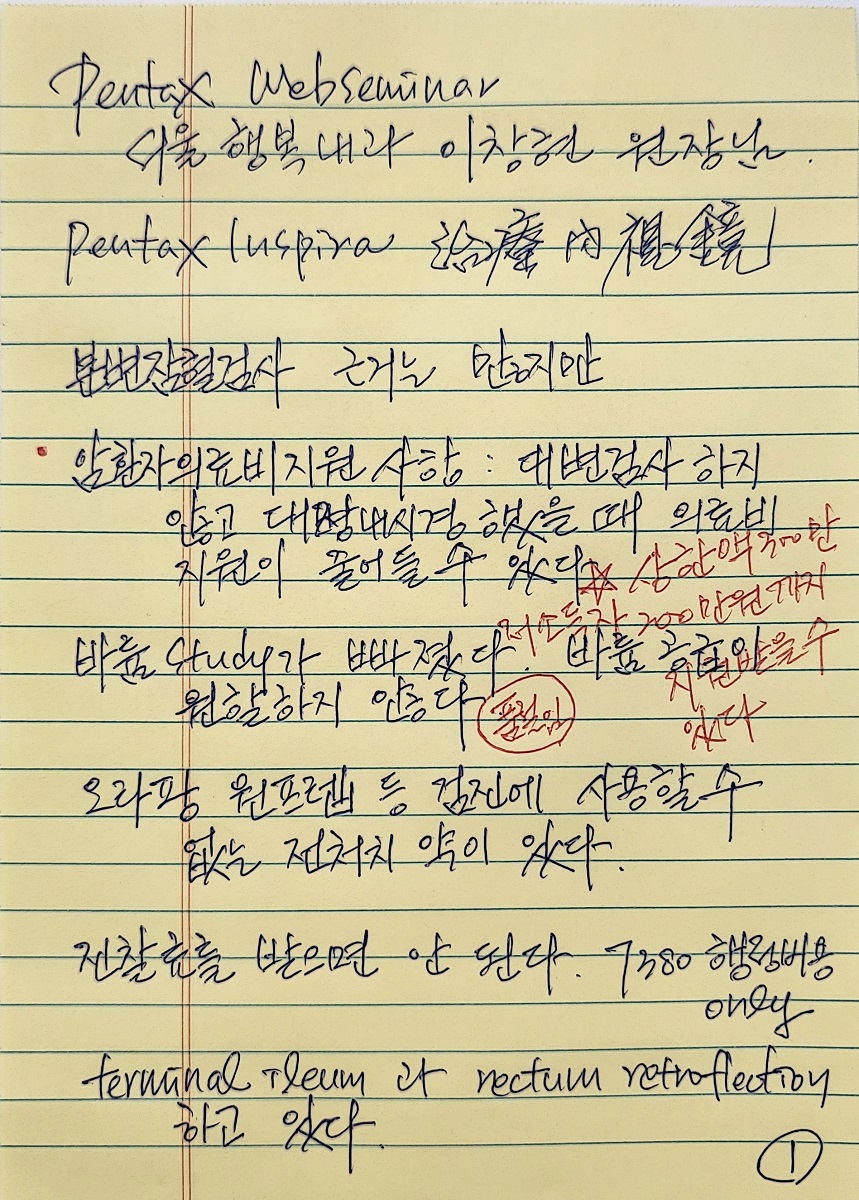 Pentax Webseminar
서울 행복내과 이창현 원장님.
Pentax Inspira 治療 內視鏡
분변잠혈검사 근거는 많지만
암환자의료비지원 사항 : 대변검사 하지
않고 대장내시경 했을 때 의료비
지원이 줄어들 수 있다
☆ 상한액 300만
저소득자 200만원까지
지원받을 수
있다
바륨 study가 빠졌다. 바륨 공급이
원할하지 않다
품절임
오라팡 원프렙 등 검진에 사용할 수
없는 전처치 약이 있다.
진찰료를 받으면 안 된다. 7380 행정비용
only
terminal ileum 과 rectum retroflection
하고 있다.
1